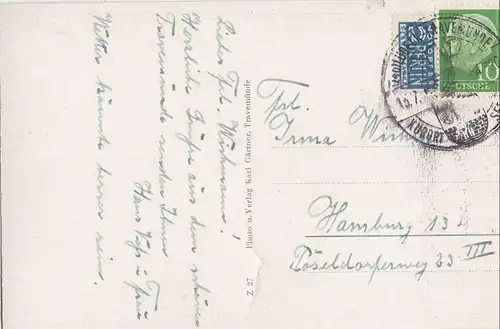 Liebes Frl. Wichmann!
Herzliche Grüße aus dem schönen
Travemünde senden Ihnen
Hans Voß u. Frau
Wetter könnte besser sein.
Z 27 Photo u. Verlag Karl Gärtner, Travemünde
NOTOPFER
2 BERLIN
STEUERMARKE
10
DEUTSCHE
TRAVEMÜNDE
KURORT
Frl.
Irma
Hamburg 13
Pöseldorferweg 23 III